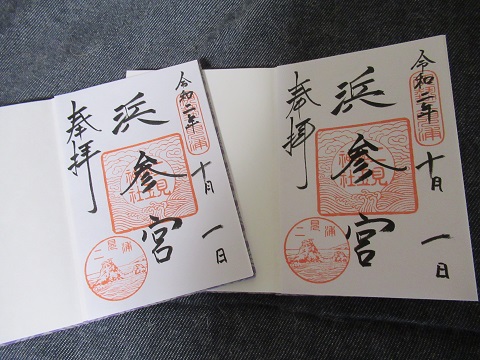 令和二年十月一日
浜参宮
奉拝
二見浦
令和二年十月一日
浜参宮
奉拝
二見浦